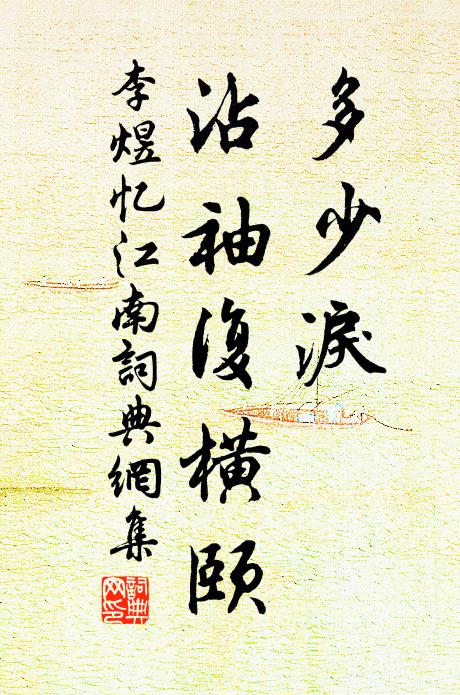 多少淚
沾袖復橫頤
李煜忆江南詞典網集
詞典網印